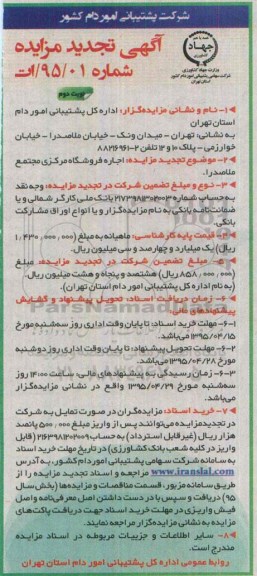 شرکت پشتیبانی امور دام کشور
آگهی تجدید مزایده
شماره ۹۵/۰۱/ت
نوبت دوم
جهاد
وزارت جهاد کشاورزی
شرکت سهامی پشتیبانی امور دام کشور
استان تهران
۱- نام و نشانی مزایده‌گزار: اداره کل پشتیبانی امور دام
استان تهران
به نشانی: تهران - میدان ونک - خیابان ملاصدرا - خیابان
خوارزمی - پلاک ۱۰ و ۱۲ تلفن ۲-۸۸۲۱۶۹۶۱
۲- موضوع تجدید مزایده: اجاره فروشگاه مرکزی مجتمع
ملاصدرا
۳- نوع و مبلغ تضمین شرکت در تجدید مزایده: وجه نقد
به حساب شماره بانک ملی کارگر شمالی و یا
ضمانت‌نامه بانکی به نام مزایده‌گزار و یا انواع اوراق مشارکت
بانکی.
۴- قیمت پایه کارشناسی: ماهیانه به مبلغ (۱/۴۳۰/۰۰۰/۰۰۰
ریال) یک میلیارد و چهارصد و سی میلیون ریال.
۵- مبلغ تضمین شرکت در تجدید مزایده: مبلغ
(۸۵۸/۰۰۰/۰۰۰ ریال) هشتصد و پنجاه و هشت میلیون ریال.
(به نام اداره کل پشتیبانی امور دام استان تهران).
۶- زمان دریافت اسناد، تحویل پیشنهاد و گشایش
پیشنهادهای مالی:
۱-۶- مهلت خرید اسناد: تا پایان وقت اداری روز سه‌شنبه مورخ
۱۳۹۵/۰۴/۱۵ می‌باشد.
۲-۶- مهلت تحویل پیشنهاد: تا پایان وقت اداری روز دوشنبه
مورخ ۱۳۹۵/۰۴/۲۸ می‌باشد.
۳-۶- زمان رسیدگی به پیشنهادهای مالی، ساعت ۱۴:۰۰ روز
سه‌شنبه مورخ ۱۳۹۵/۰۴/۲۹ واقع در نشانی مزایده‌گزار
می‌باشد.
۷- خرید اسناد: مزایده‌گران در صورت تمایل به شرکت
در تجدید مزایده می‌توانند پس از واریز مبلغ ۵۰۰/۰۰۰ پانصد
هزار ریال (غیرقابل استرداد) به حساب (قابل
واریز در کلیه شعب بانک کشاورزی) در تاریخ مهلت خرید اسناد
به سامانه شرکت سهامی پشتیبانی امور دام کشور، به آدرس
www.iranslal.com مراجعه و اسناد تجدید مزایده را از
طریق سامانه مزبور، قسمت مناقصات و مزایده‌ها (بخش سال
۹۵) دریافت و سپس با در دست داشتن اصل معرفی‌نامه و اصل
فیش واریزی در مهلت خرید اسناد جهت دریافت پاکت‌های
مزایده به نشانی مزایده‌گزار مراجعه نمایند.
۸- سایر اطلاعات و جزییات مربوطه در اسناد مزایده
مندرج است.
روابط عمومی اداره کل پشتیبانی امور دام استان تهران